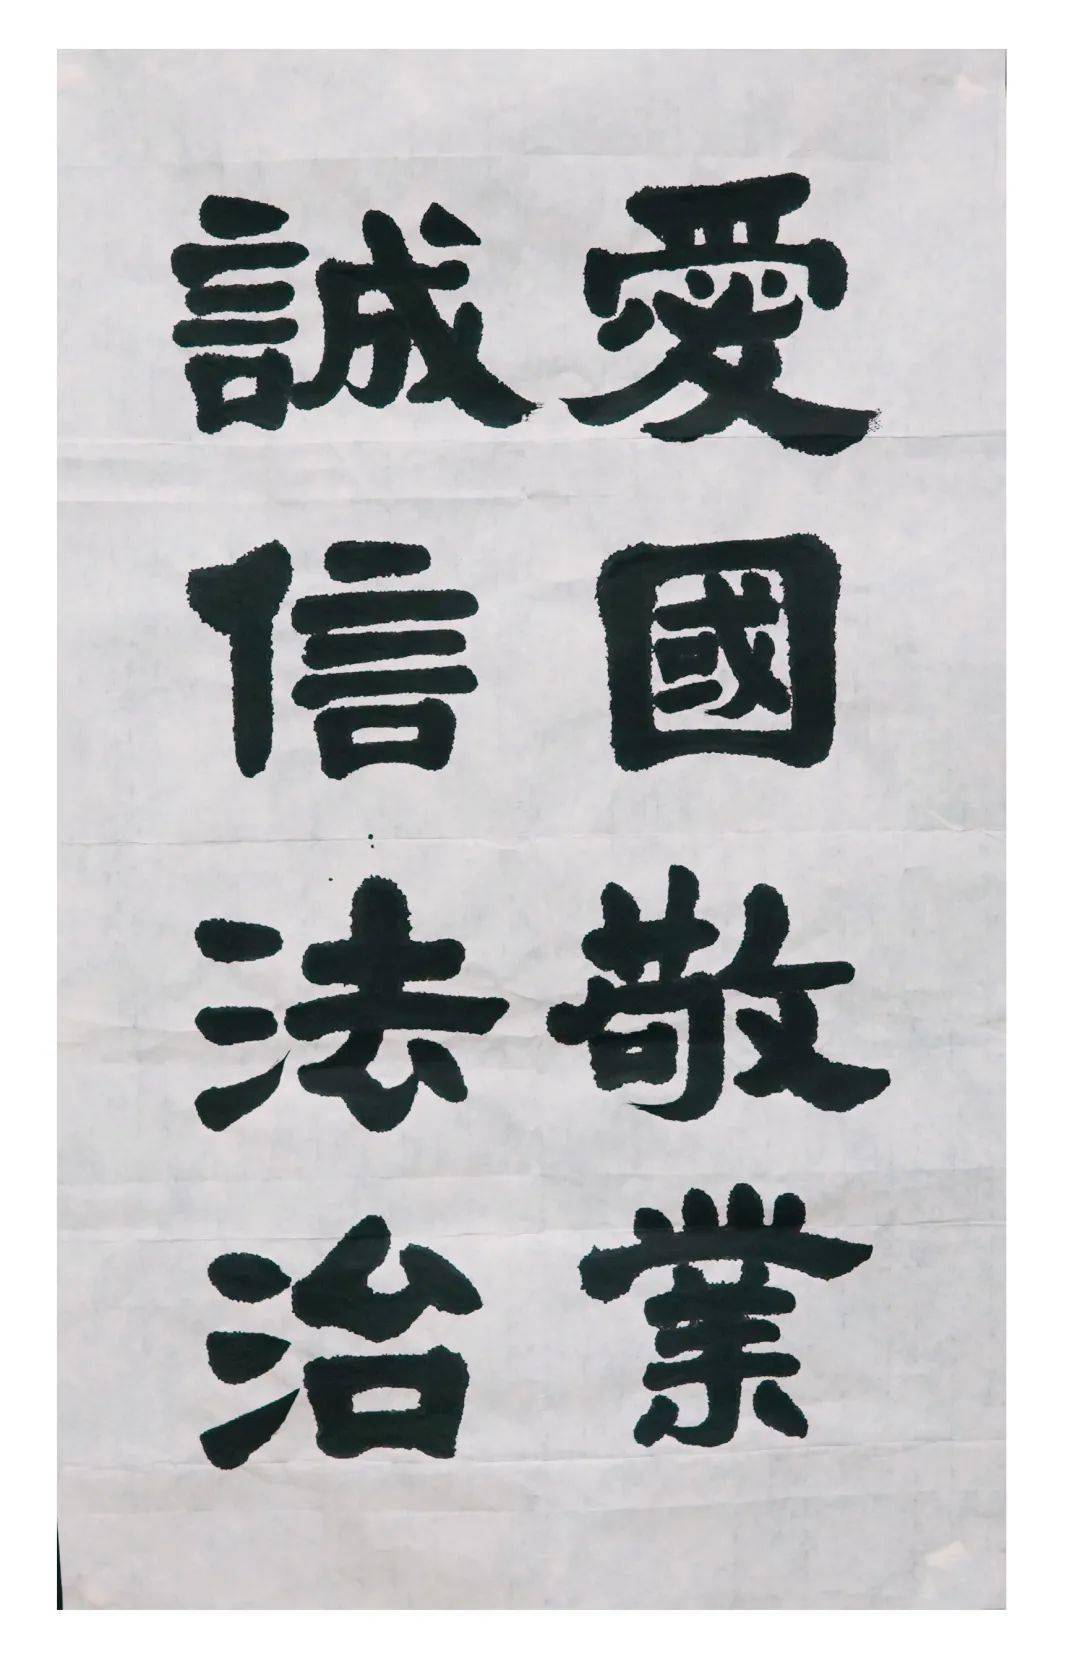 愛國敬業
誠信法治